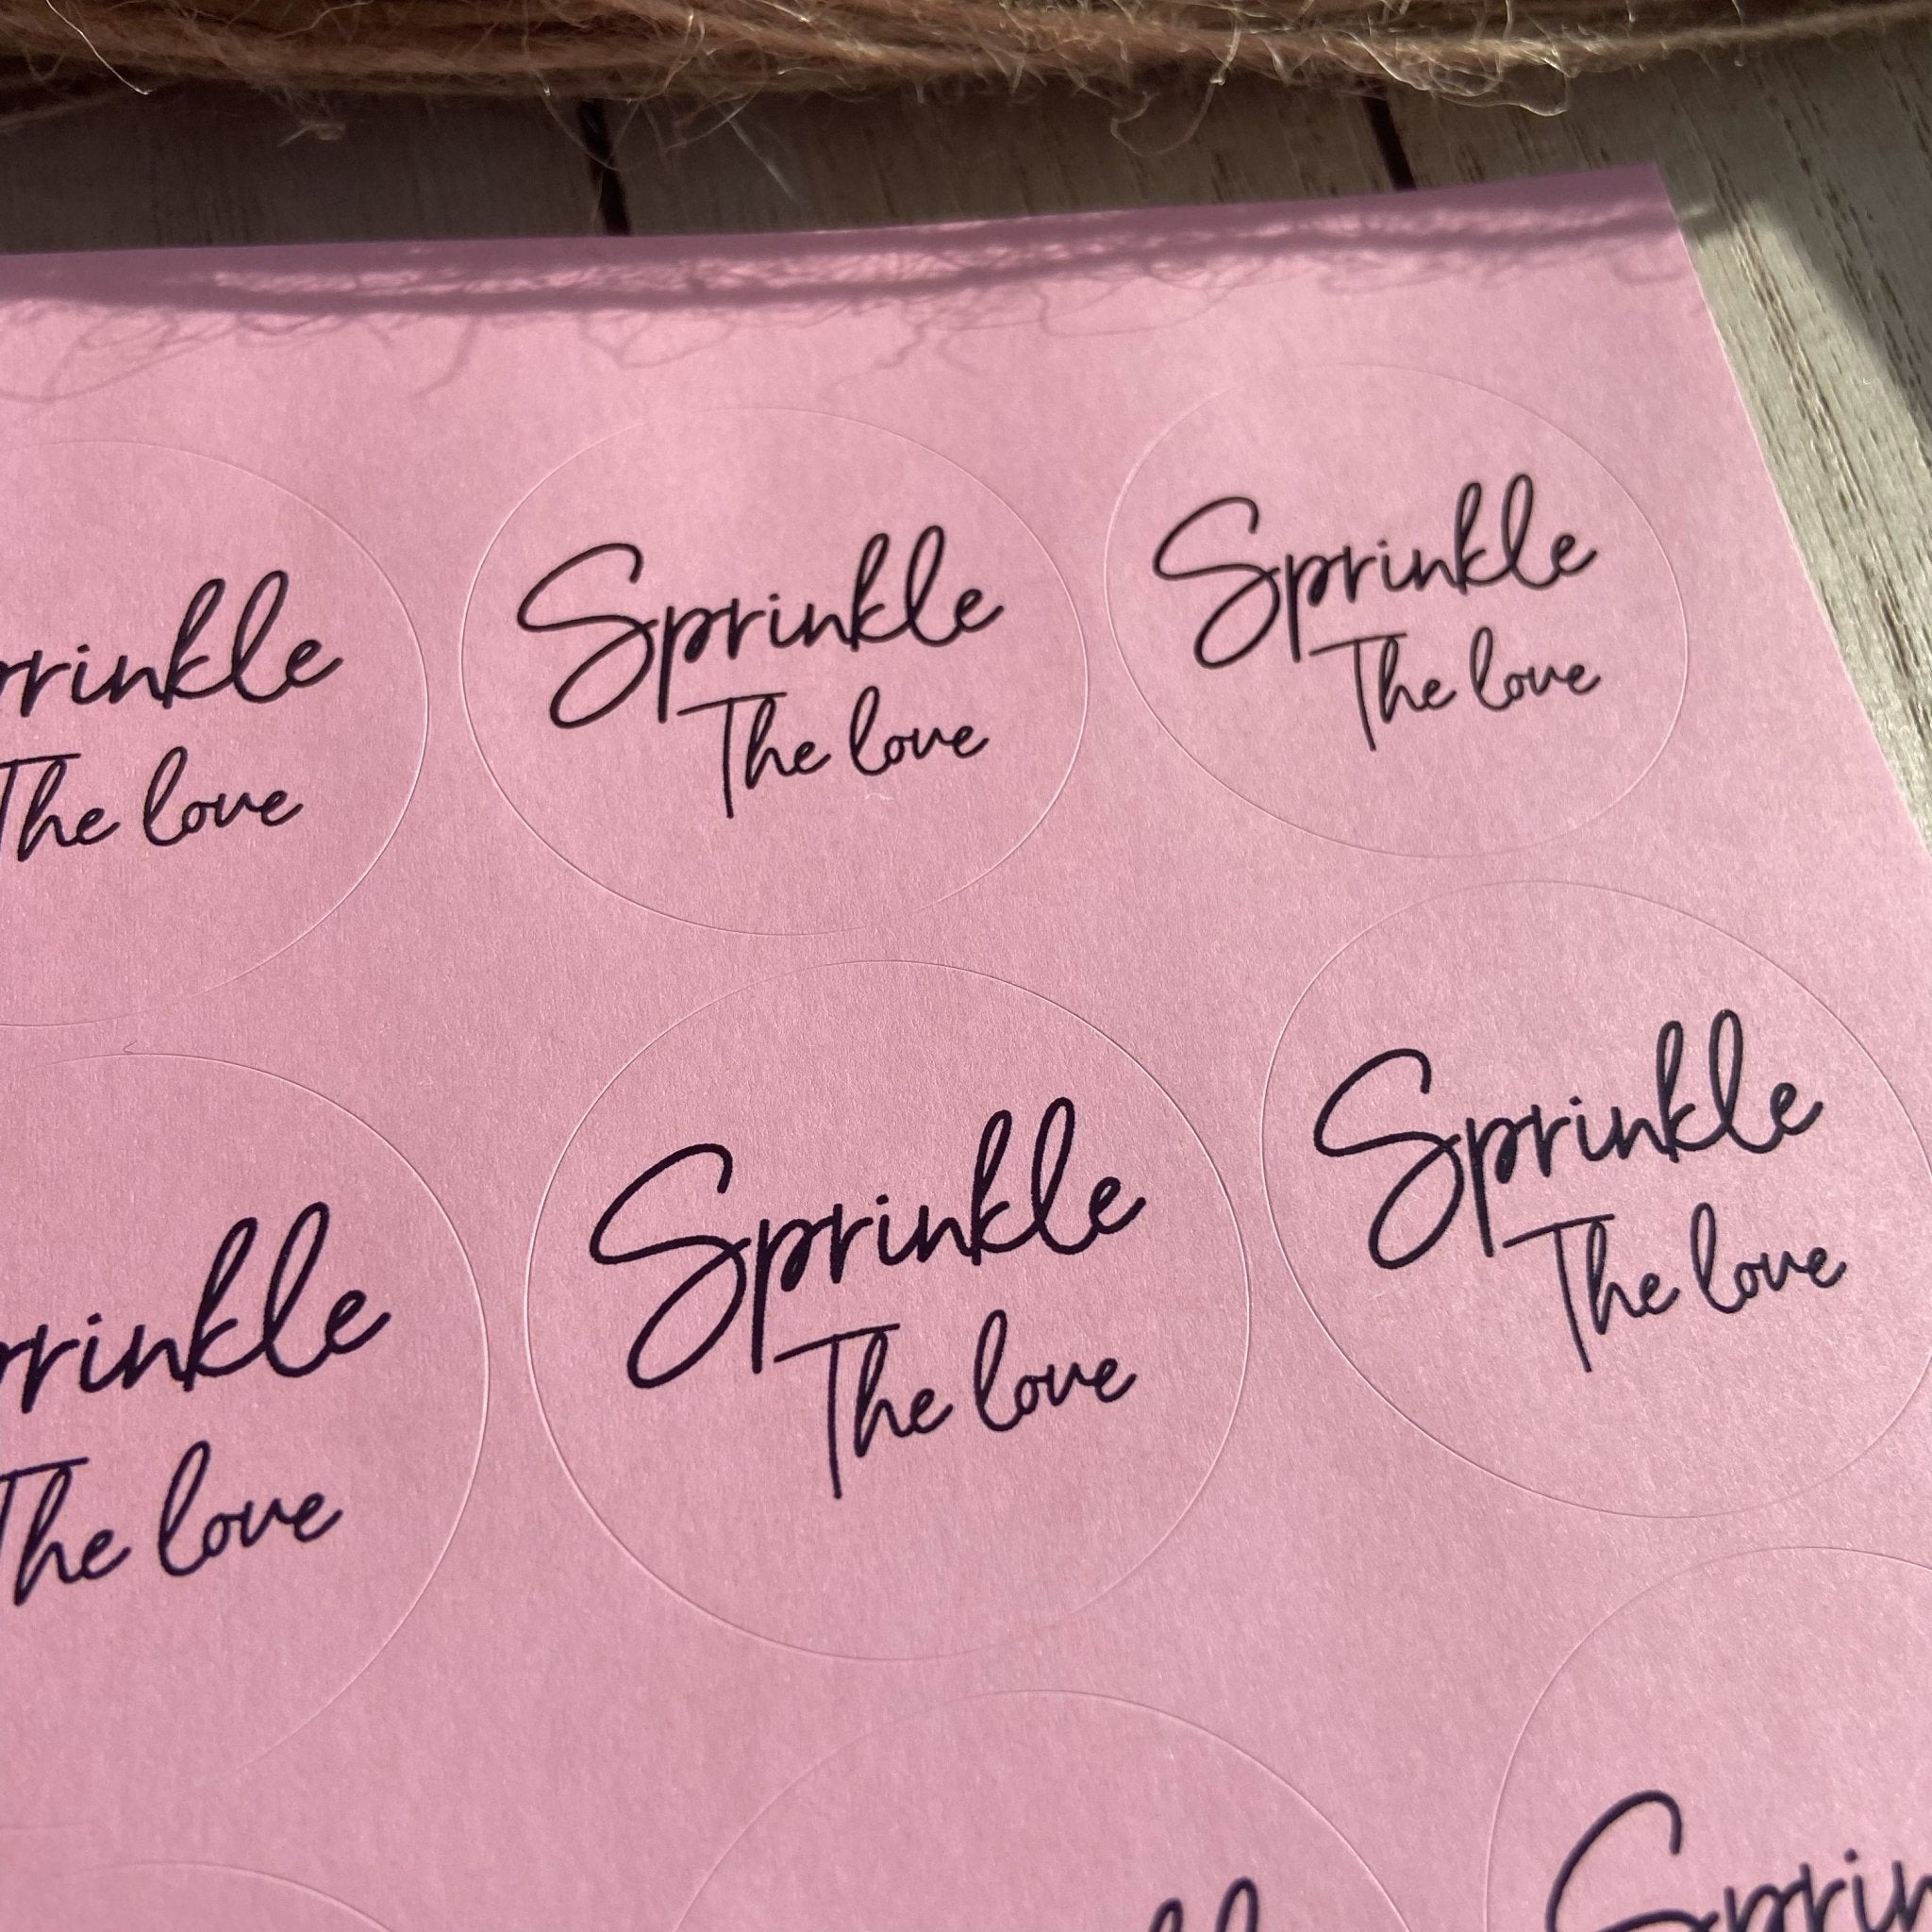 Sprinkle
The love
Sprinkle
The love
prinkle
The love
Sprinkle
The love
Sprinkle
The love
prinkle
The love
Sprin